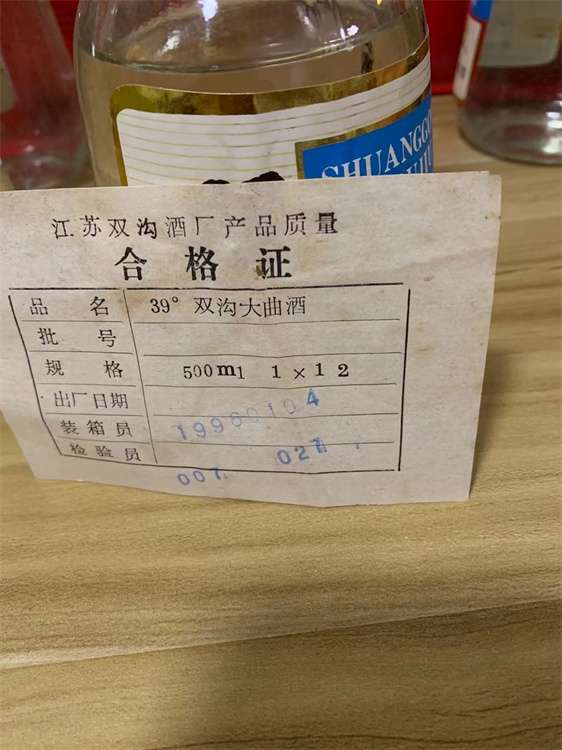 SHUANGG
江苏双沟酒厂产品质量
合格证
品名 39° 双沟大曲酒
批号
规格 500ml 1×12
出厂日期 19960104
装箱员 021
检验员 007